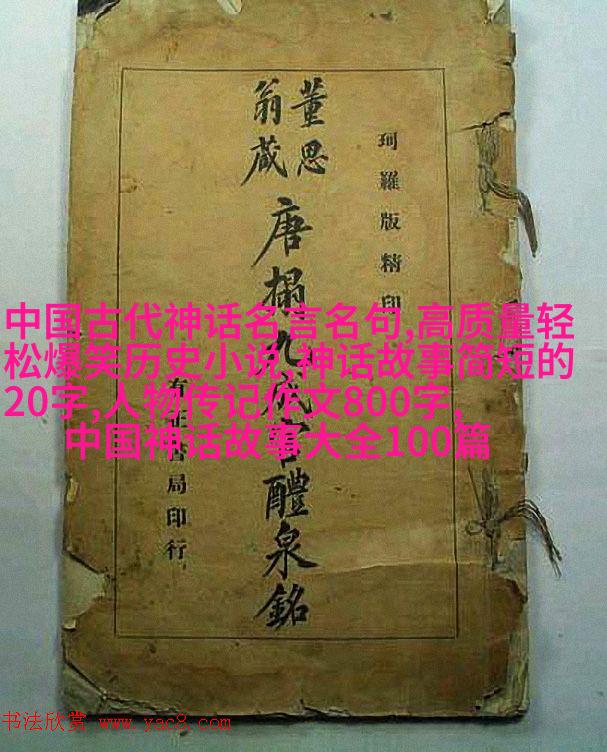 珂羅版精印
董思
翁藏
唐搨九成宮醴泉銘
有正書局印行
中国古代神话名言名句,高质量轻
松爆笑历史小说,神话故事简短的
20字,人物传记作文800字,
中国神话故事大全100篇
书法欣赏 www.yac8.com